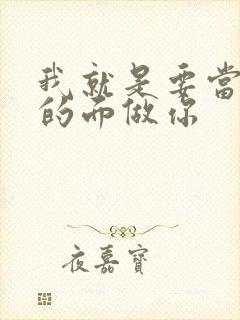 我就是要當
的面做你
夜嘉寶